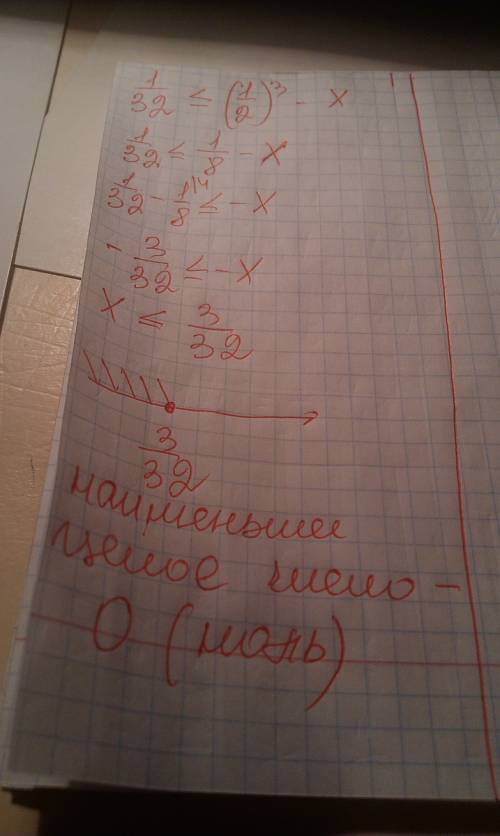 1/32 ≤ (1/2)³ - x
1/32 ≤ 1/8 - x
1/32 - 1/8 \4 ≤ - x
- 3/32 ≤ - x
x ≤ 3/32
3/32
наименьшее
целое число -
0 (ноль)